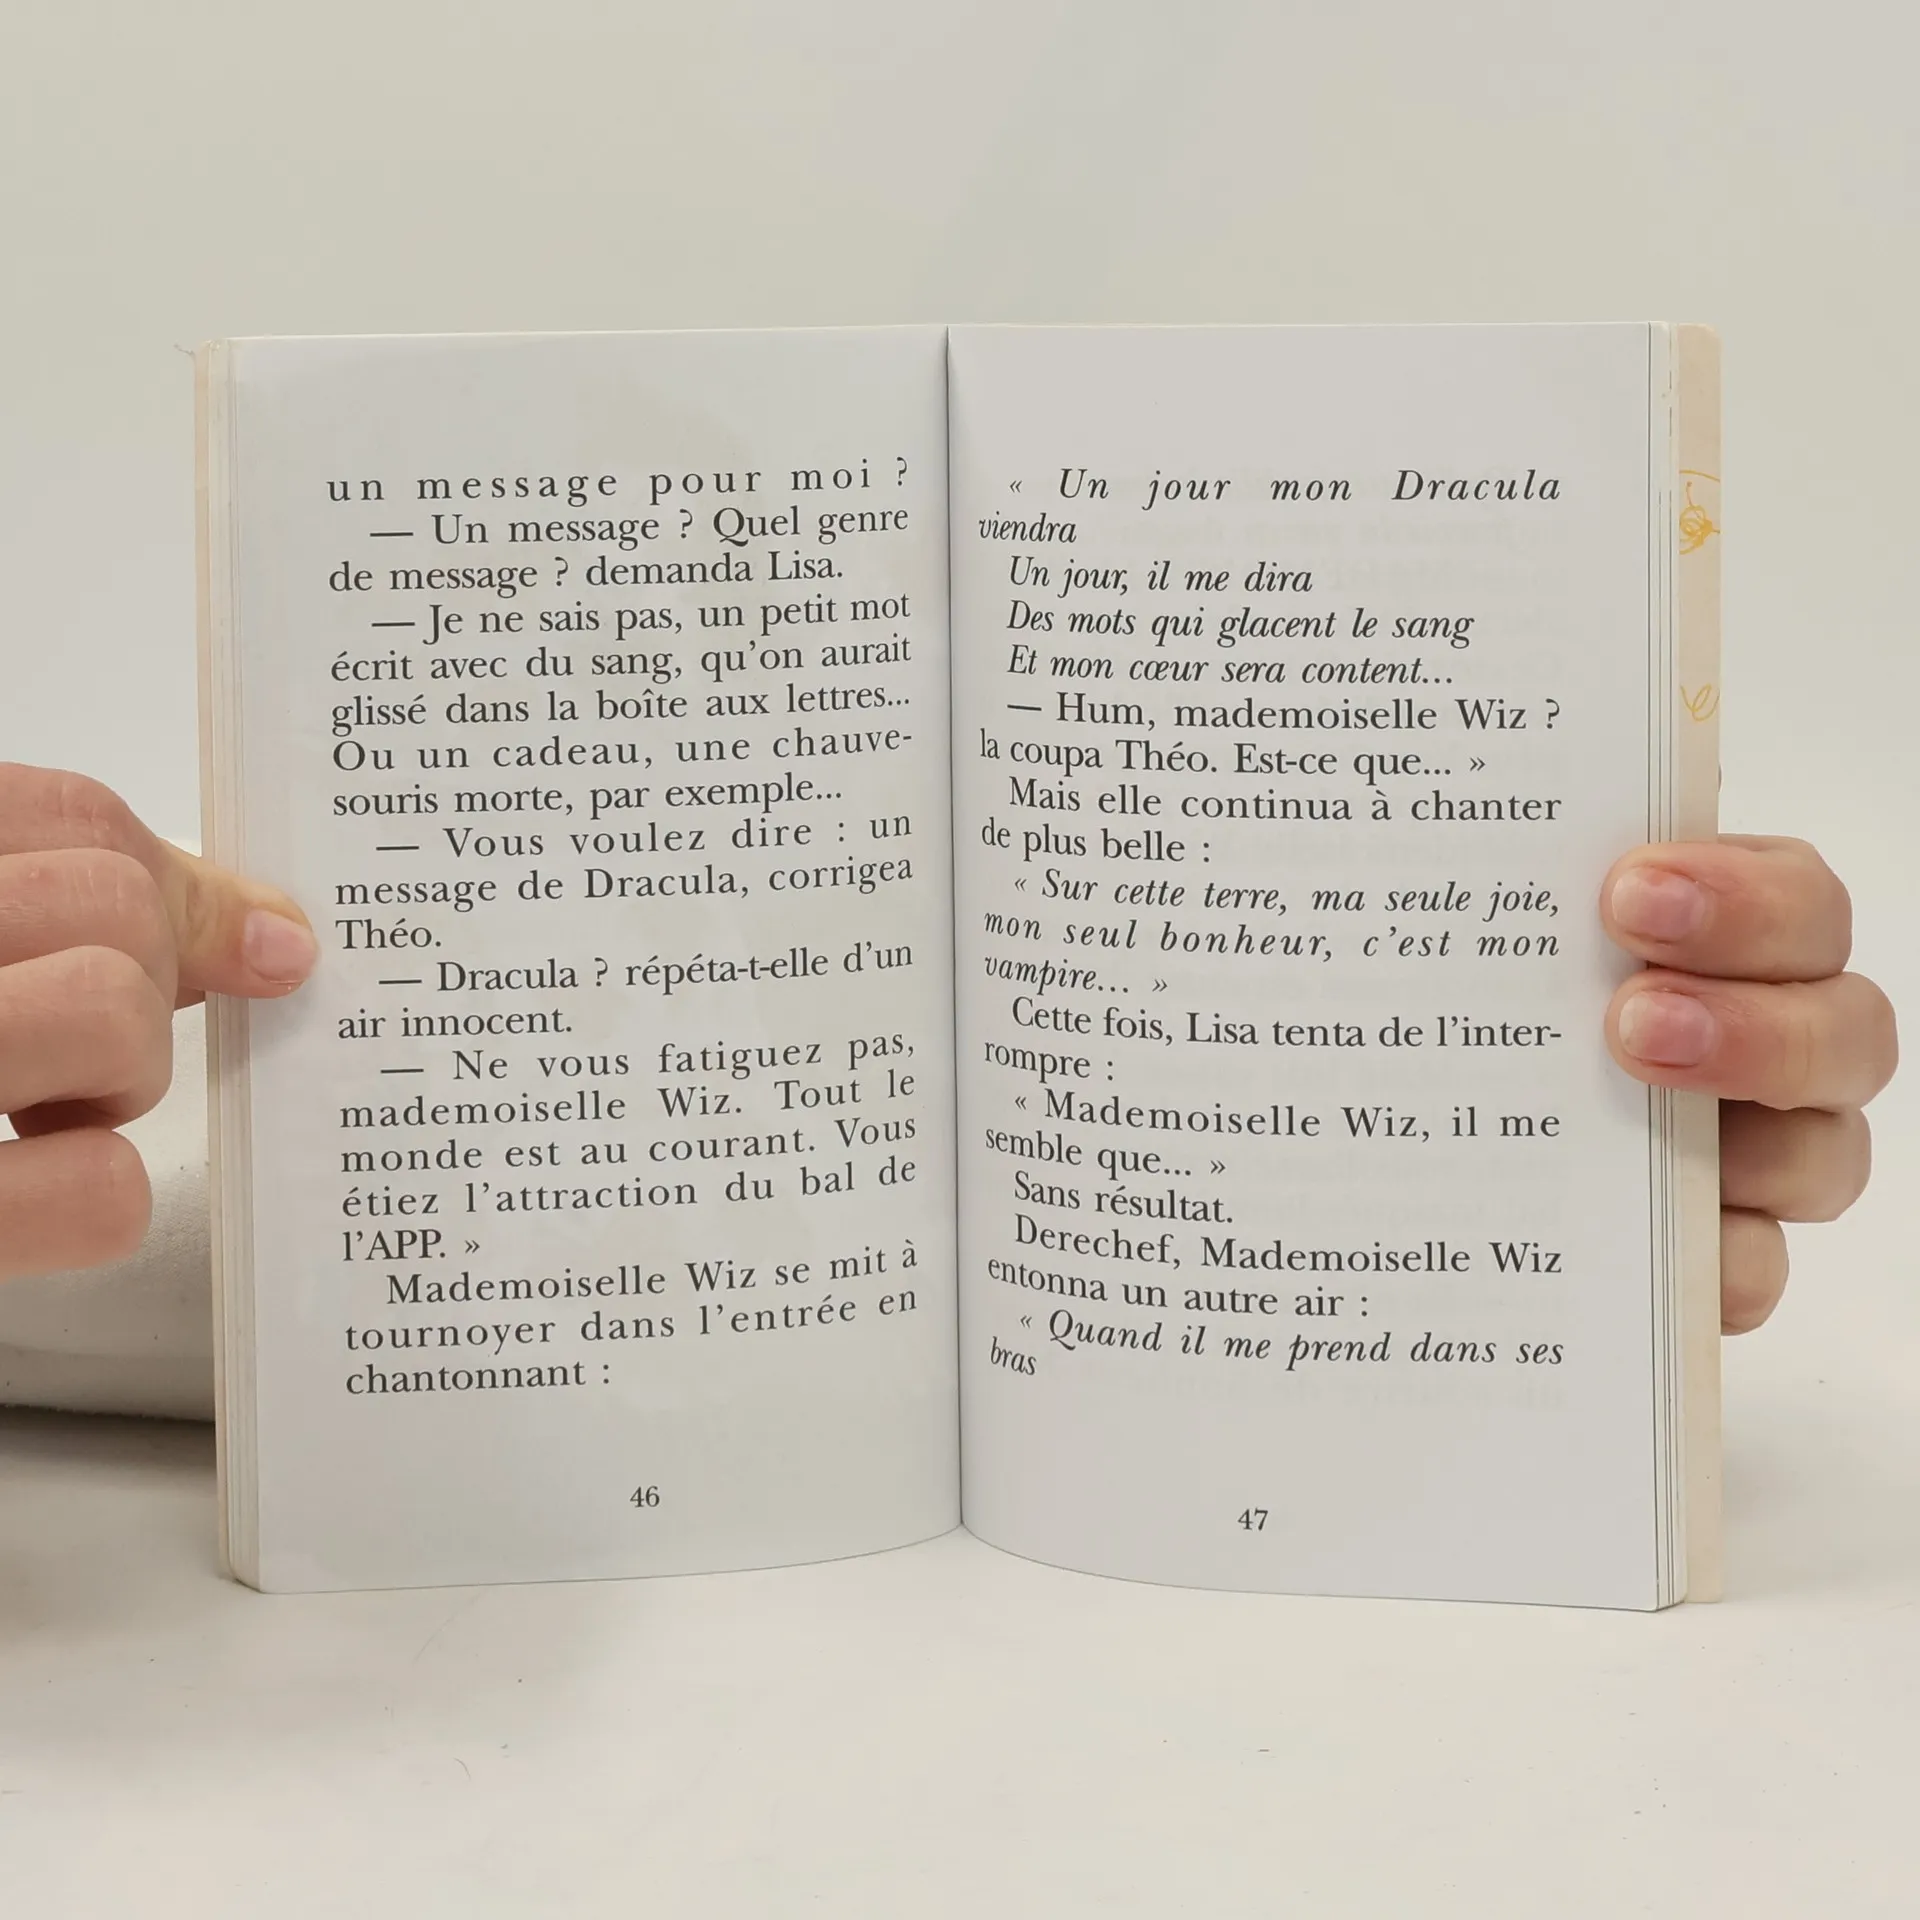 un message pour moi ?
— Un message ? Quel genre
de message ? demanda Lisa.
— Je ne sais pas, un petit mot
écrit avec du sang, qu'on aurait
glissé dans la boîte aux lettres...
Ou un cadeau, une chauve-
souris morte, par exemple...
— Vous voulez dire : un
message de Dracula, corrigea
Théo.
— Dracula ? répéta-t-elle d'un
air innocent.
— Ne vous fatiguez pas,
mademoiselle Wiz. Tout le
monde est au courant. Vous
étiez l'attraction du bal de
l'APP. »
Mademoiselle Wiz se mit à
tournoyer dans l'entrée en
chantonnant :
46
« Un jour mon Dracula
viendra
Un jour, il me dira
Des mots qui glacent le sang
Et mon cœur sera content...
— Hum, mademoiselle Wiz ?
la coupa Théo. Est-ce que... »
Mais elle continua à chanter
de plus belle :
« Sur cette terre, ma seule joie,
mon seul bonheur, c'est mon
vampire... »
Cette fois, Lisa tenta de l'inter-
rompre :
« Mademoiselle Wiz, il me
semble que... »
Sans résultat.
Derechef, Mademoiselle Wiz
entonna un autre air :
« Quand il me prend dans ses
bras
47